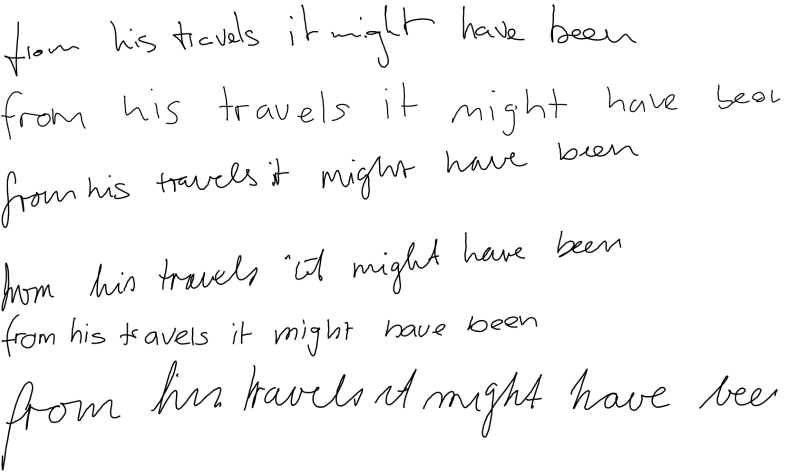 from his travels it might have been
from his travels it might have been
from his travels it might have been
from his travels it might have been
from his travels it might have been
from his travels it might have bee